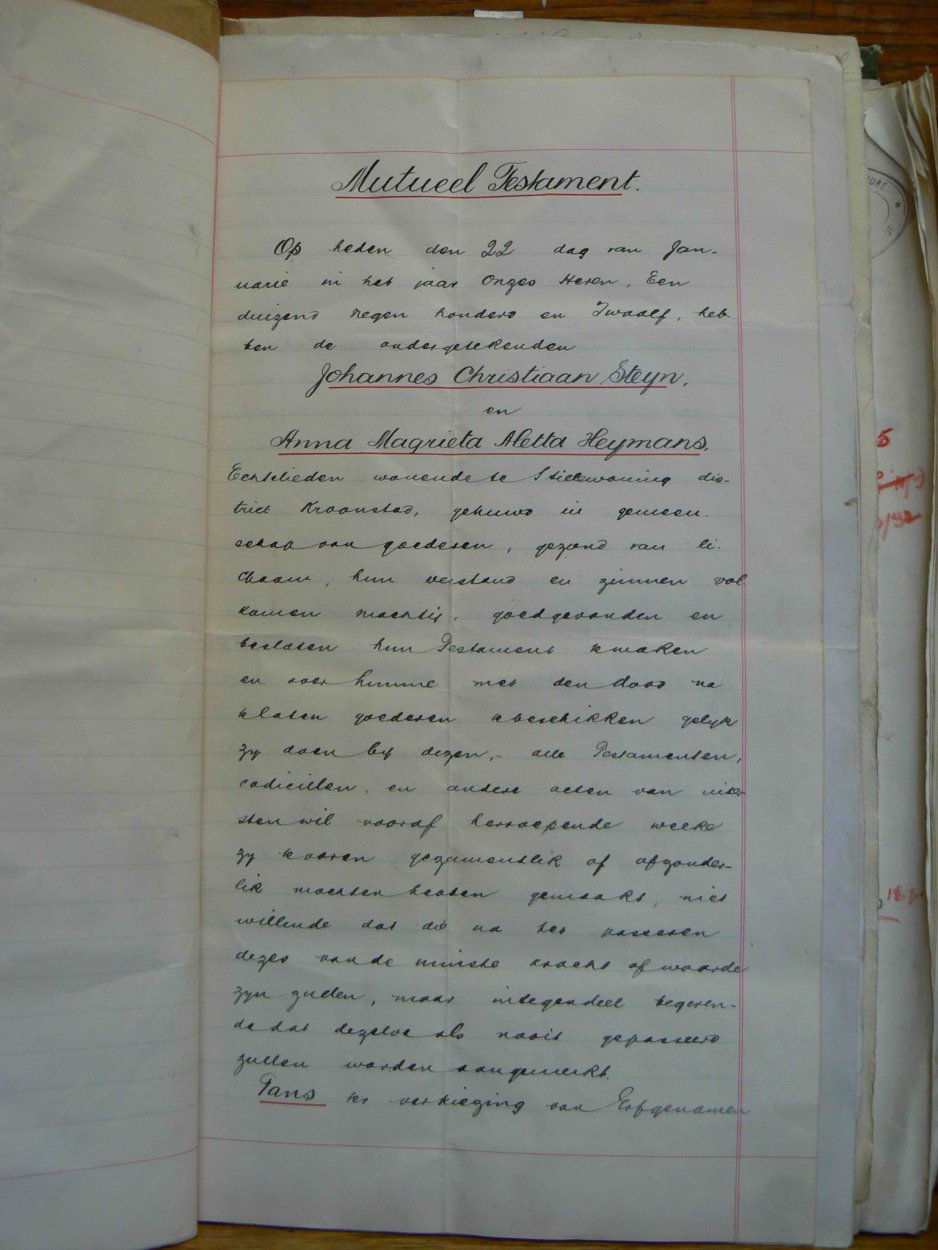 Mutueel Testament.
Op heden den 22 dag van Jan-
uarie in het jaar Onzes Heren, Een
duizend negen honderd en Twaalf, heb
ben de ondergetekenden
Johannes Christiaan Steyn,
en
Anna Magrieta Aletta Heymans,
Echtelieden wonende te Stillewoning dis-
trict Kroonstad, gehuwd in gemeen-
schap van goederen, gezond van li-
chaam, hun verstand en zinnen vol
komen machtig, goedgevonden en
besloten hun Testament te maken
en over hunne met den dood na
te laten goederen te beschikken gelyk
zy doen by dezen,- alle Testamenten,
codicillen, en andere acten van uiter
sten wil vooraf herroepende welke
zy te voren gezamentlik of afzonder-
lik mochten hebben gemaakt, niet
willende dat die na het passeren
dezes van de minste kracht of waarde
zyn zullen, maar integendeel begeren-
de dat dezelve als nooit gepasseerd
zullen worden aangemerkt.
Tans ter verkiezing van Erfgenamen
5